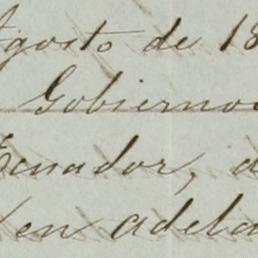 Agosto de 18
Gobierno
Ecuador, d
en adela